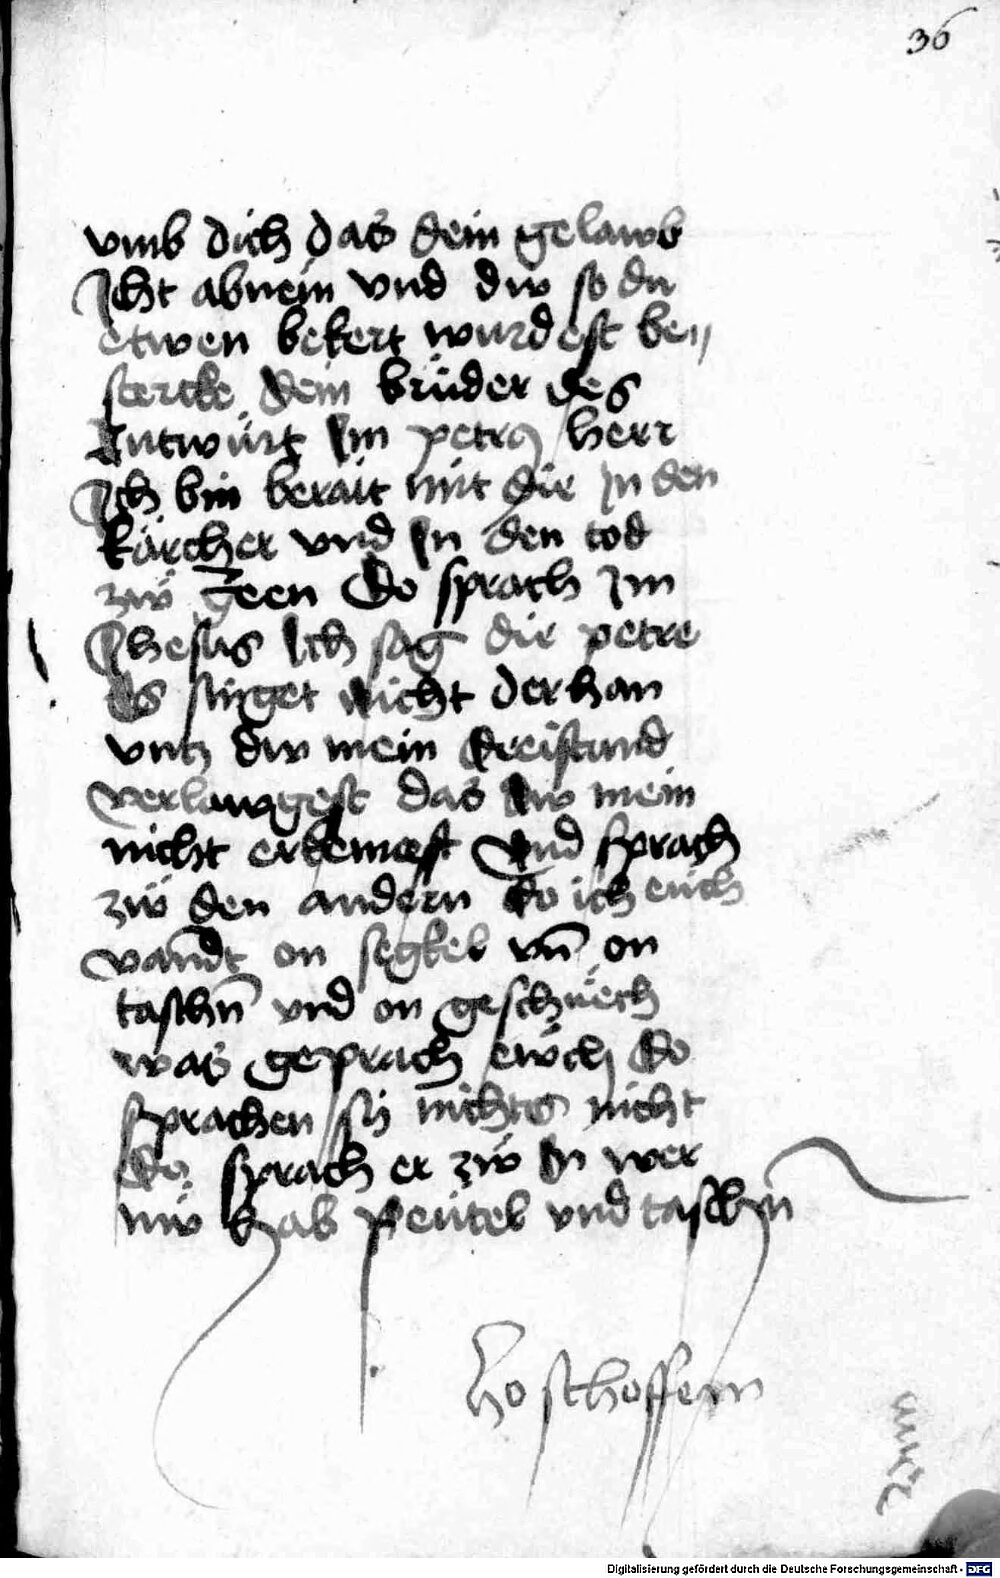 36
vmb dich das dein gelawb
Icht abnein vnd dw so du
etwen bekert wurdest be„
stercke dein brüder des
Antwürt Im petrꝯ herr
Ich bin berait mit dir In den
kärcher vnd In den tod
zw̋ geen Do sprach Im
Ihesus Ich sag dir petre
es singet nicht der han
vntz dw mein dreistund
verlawgest das dw mein
nicht erkennest Vnd sprach
zw̋ den andern do ich euch
vandt on segkel vn̄ on
taschn̄ vnd on geschüech
was geprach ew̋ch do
sprachen sij nichts nicht
do sprach er zw̋ In wer
nw̋ hab peütel vnd taschn̄
Digitalisierung gefördert durch die Deutsche Forschungsgemeinschaft - DFG